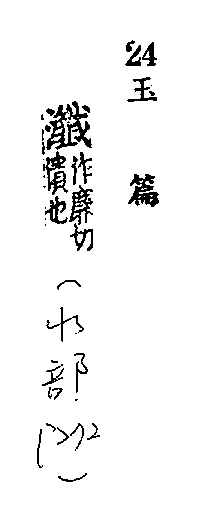 24 玉 篇
瀸 作廉切
漬也
(水部